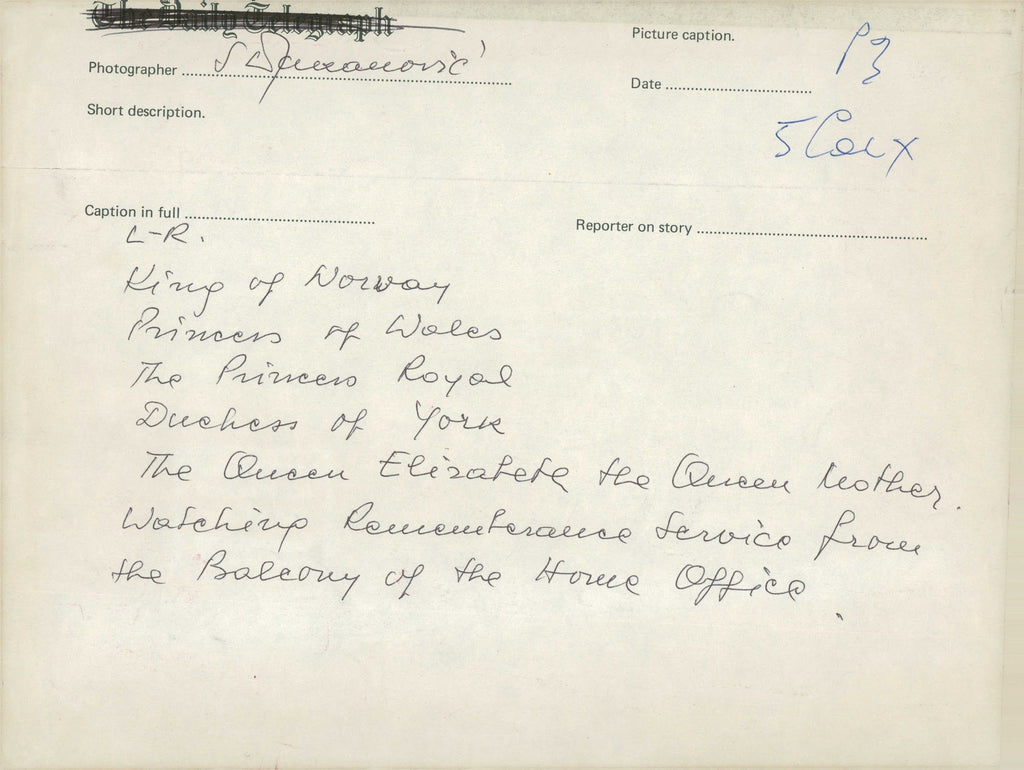 The Daily Telegraph
Picture caption.
P3
Photographer
S Djukanović
Date
Short description.
5 Col x
Caption in full
Reporter on story
L-R.
King of Norway
Princess of Wales
The Princess Royal
Duchess of York
The Queen Elizabeth the Queen Mother.
Watching Rememberance Service from
the Balcony of the Home Office